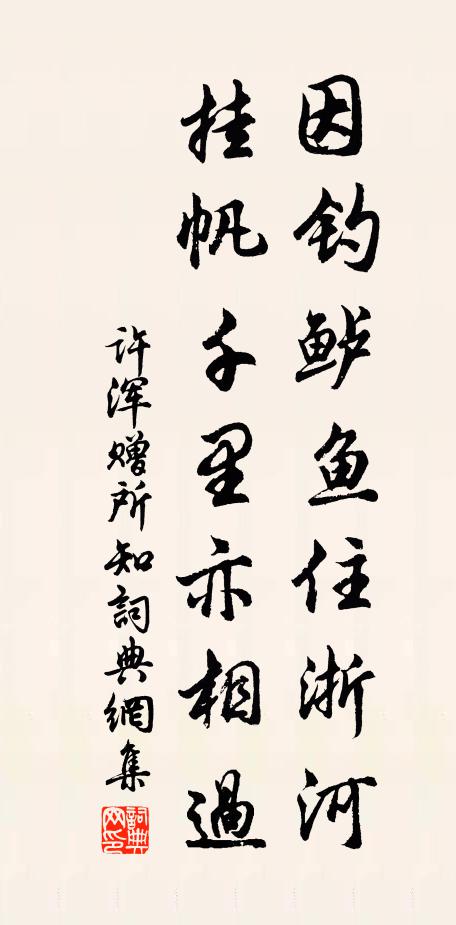 因钓鲈鱼住浙河
挂帆千里亦相過
许浑赠所知詞典網集
詞典网印